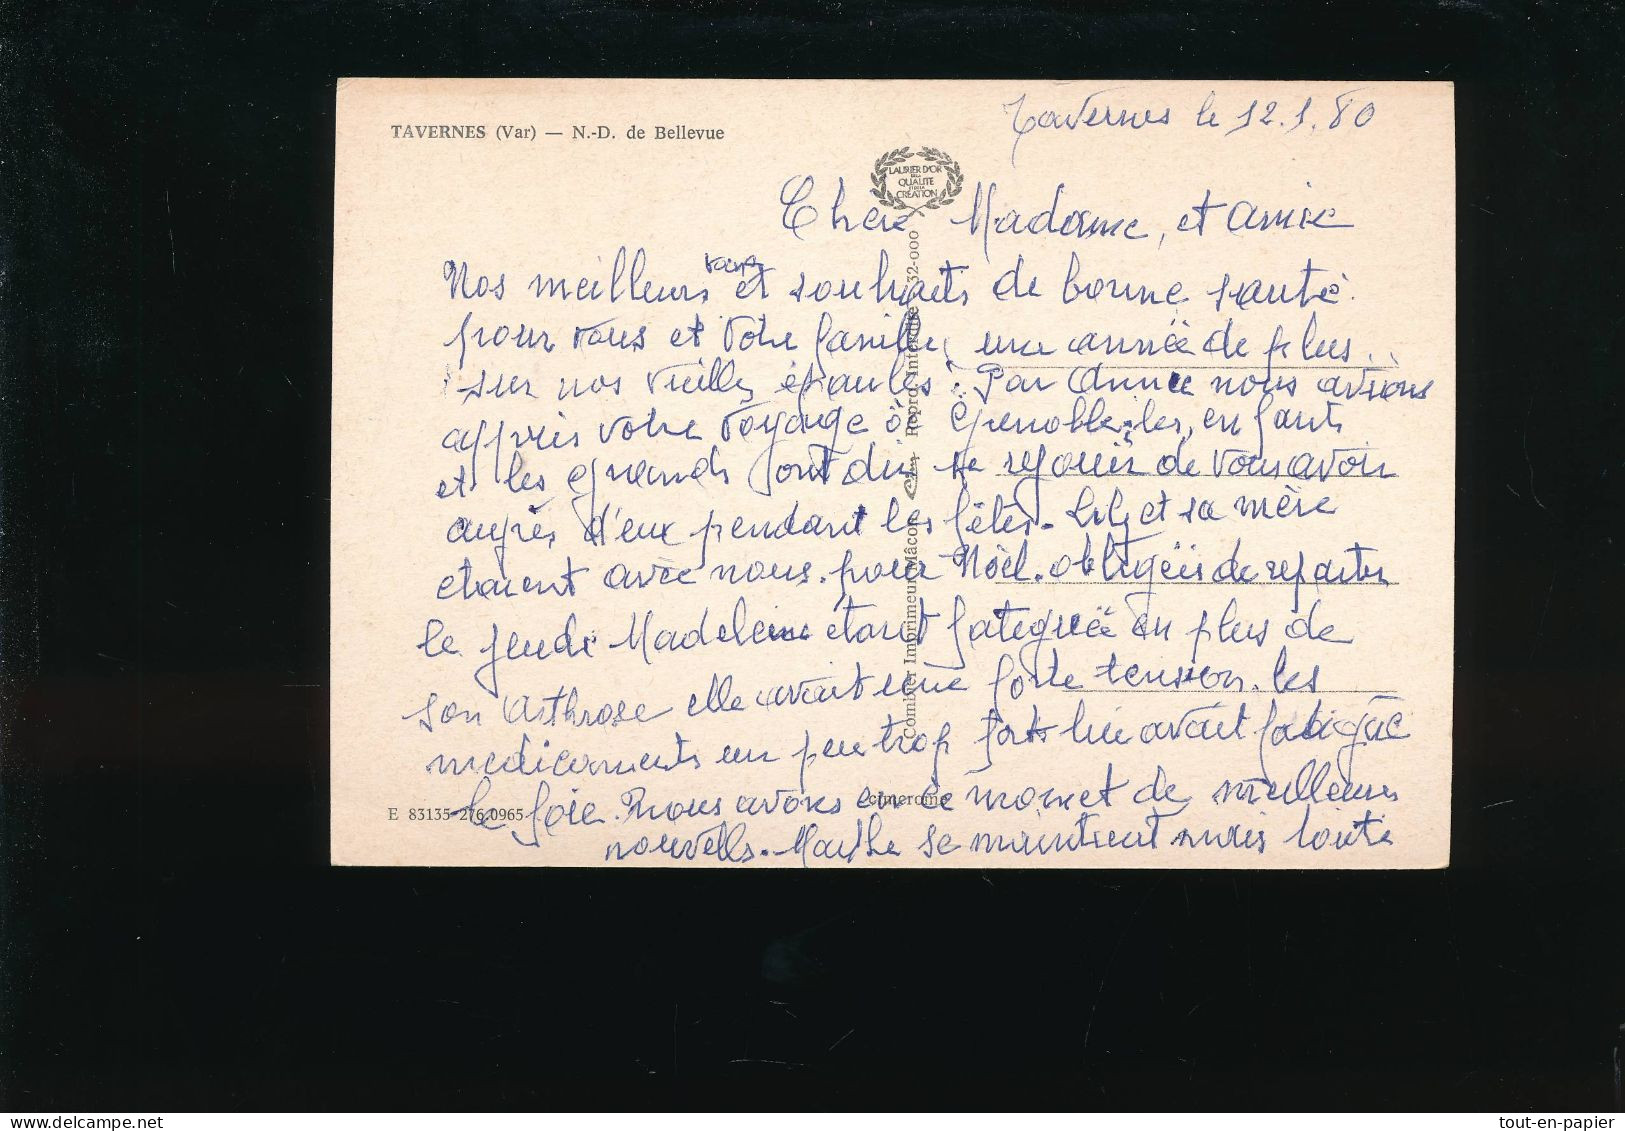 TAVERNES (Var) — N.-D. de Bellevue
Tavernes le 12.1.80
LAURIER D'OR
DE LA
QUALITE
ET DE LA
CRÉATION
Chère Madame, et amie
Nos meilleurs vœux et souhaits de bonne santé.
pour vous et votre famille, une année de plus..
sur nos vieilles épaules. Par Annie nous avions
appris votre voyage à Grenoble, les enfants
et les grands ont du se rejouir de vous avoir
auprès d'eux pendant les fêtes. et sa mère
etaient avec nous pour Noël. obligéeis de repartir
le jeudi Madeleine étant fatiguéé en plus de
son Arthrose elle avait une forte tension. les
medicaments un peu trop forts lui avait fatigué
le foie. nous avons en ce moment de meilleures
nouvells. Marthe se maintient mais toute
Combier Imprimeur Mâcon
Repr. Interdite 32-000
cimerome
E 83135-276.0965
tout-en-papier
delcampe.net